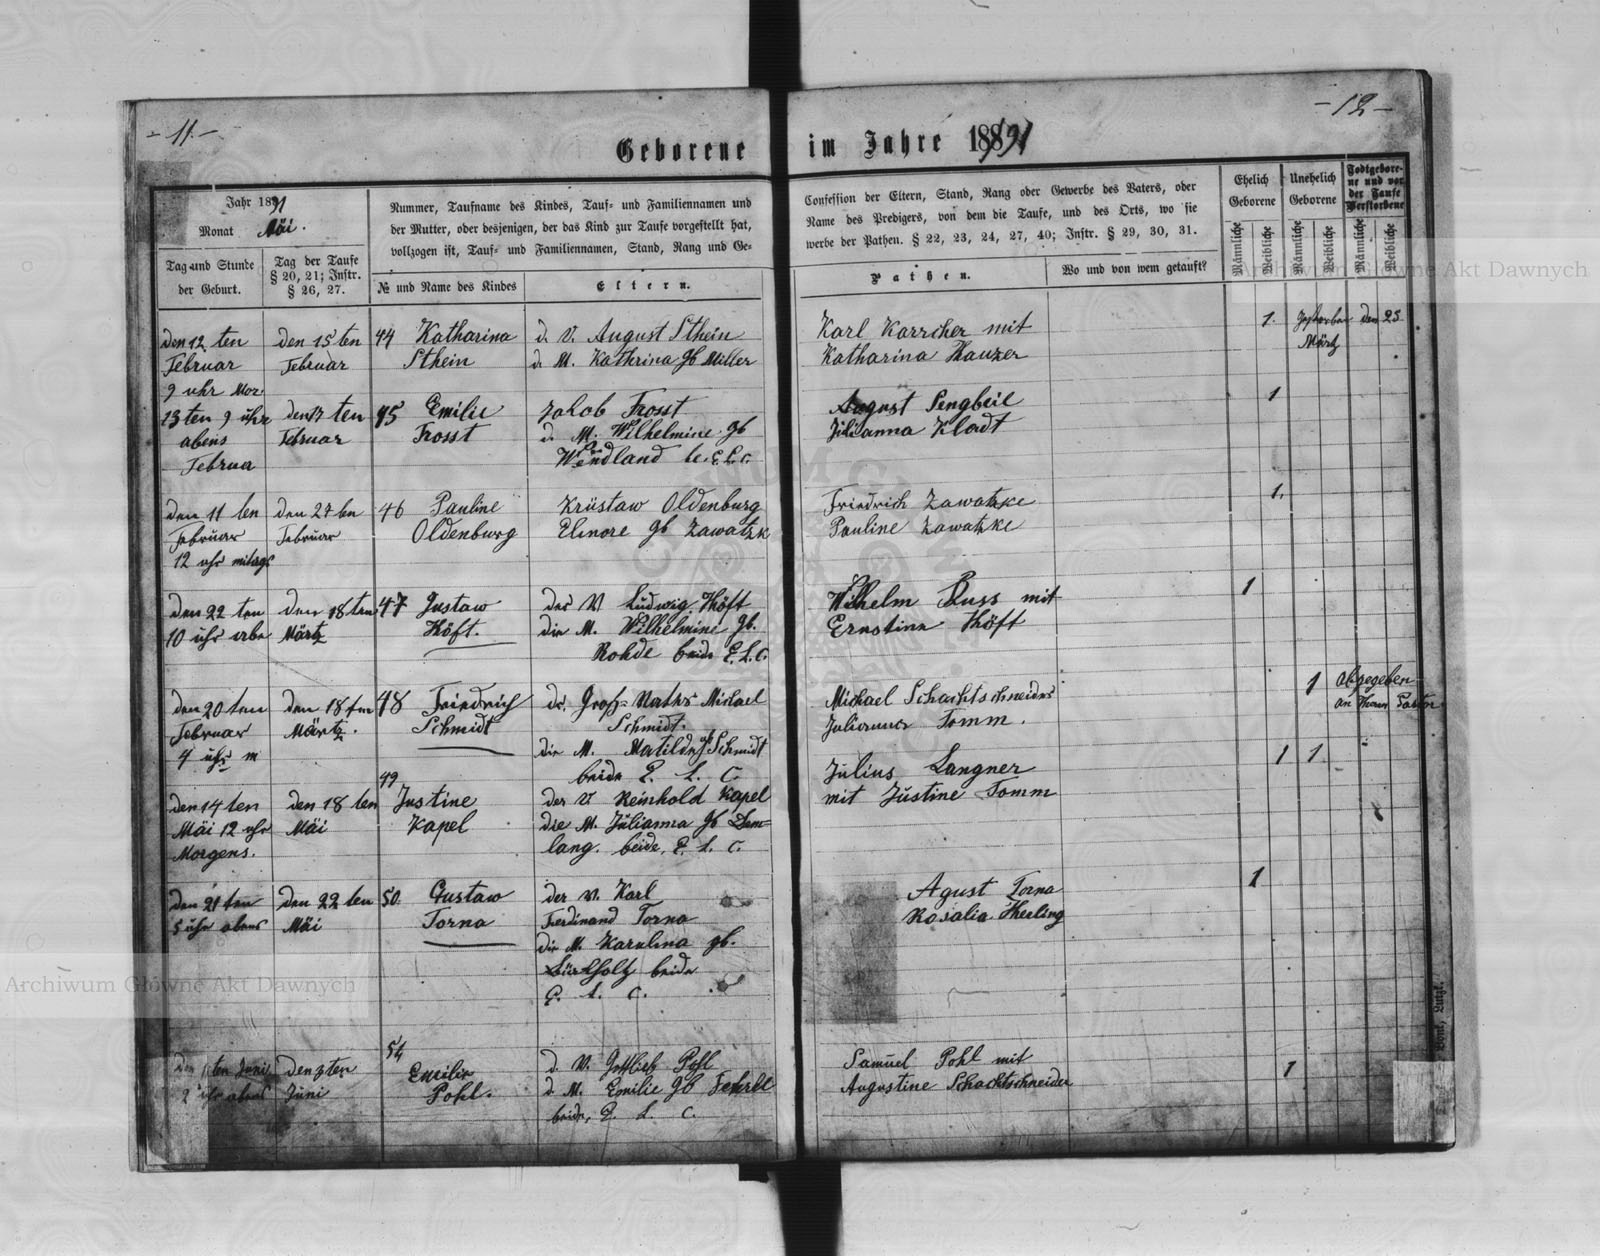 - 11. -
- 12 -
Geborene im Jahre 1891
Jahr 1891
Monat Mäi.
Tag und Stunde
der Geburt.
Tag der Taufe
§ 20, 21; Instr.
§ 26, 27.
Nummer, Taufname des Kindes, Tauf- und Familiennamen und
der Mutter, oder desjenigen, der das Kind zur Taufe vorgestellt hat,
vollzogen ist, Tauf- und Familiennamen, Stand, Rang und Ge-
№ und Name des Kindes
Eltern.
Confession der Eltern, Stand, Rang oder Gewerbe des Vaters, oder
Name des Predigers, von dem die Taufe, und des Orts, wo sie
werbe der Pathen. § 22, 23, 24, 27, 40; Instr. § 29, 30, 31.
Pathen.
Wo und von wem getauft?
Ehelich
Geborene
Unehelich
Geborene
Todtgebore-
ne und vor
der Taufe
Verstorbene
Männliche
Weibliche
Männliche
Weibliche
Männliche
Weibliche
den 12 ten
Februar
9 uhr Mor.
den 15 ten
Februar
44 Katharina
Sthein
d. V. August Sthein
d. M. Kathrina gb Müller
Karl Karrcher mit
Katharina Hauzer
1.
Gestorben den 25
Märtz
13 ten 9 ühr
abens
Februa
den 17 ten
Februar
45 Emilie
Frosst
Jakob Frosst
d. M. Wilhelmine gb
Wendland be. E. L. C.
August Pengbeil
Julianna Kladt
1
den 11 ten
Februar
12 uhr mitags
den 27 ten
Februar
46 Pauline
Oldenburg
Krüstaw Oldenburg
Elenore gb Zawatzk
Friedrich Zawatzke
Pauline Zawatzke
1.
den 22 ten
10 uhr abe
den 18 ten
Märtz
47 Gustaw
Höft.
der V Ludwig Höft
die M. Wilhelmine gb.
Rohde beide E. L. C.
Wilhelm Russ mit
Ernstine Höft
1
den 20 ten
Februar
4 uhr m
den 18 ten
Märtz.
48 Friedrich
Schmidt
dr. Groß-Vater Michael
Schmidt.
die M. Matilde gb Schmidt
beide E. L. C.
Michael Schachtschneider
Julianna Tomm.
1
abgegeben
an Herrn Pastor
den 14 ten
Mäi 12 uhr
Morgens.
den 18 ten
Mäi
49
Justine
Kapel
der V Reinhold Kapel
die M. Julianna gb Dem-
lang. beide. E. L. C.
Julius Langner
mit Justine Tomm
1 1
den 21 ten
5 uhr abens
den 22 ten
Mäi
50. Gustaw
Torna
der V. Karl
Ferdinand Torna
die M. Karulina gb.
beide
E. L. C.
Agust Torna
Rosalia Heerling
1
ten Juni
2 uhr abens
den 3 ten
Juni
51
Emilie
Pohl.
d. V. Gottlieb Pohl
d. M. Emilie gb
beide, E. L. C.
Samuel Pohl mit
Augustine Schachtschneider
1
Archiwum Główne Akt Dawnych
Archiwum Główne Akt Dawnych